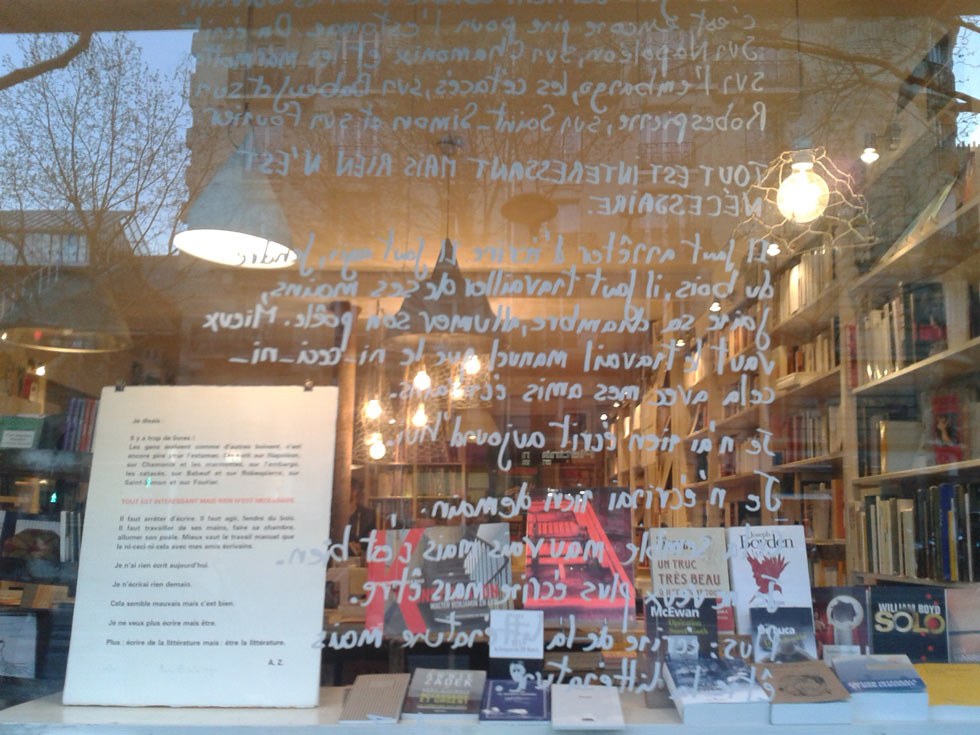 c'est encore pire pour l'estomac. On écrit
sur Napoléon, sur Chamonix et les marmottes,
sur l'embargo, les cétacés, sur Babeuf et sur
Robespierre, sur Saint-Simon et sur Fourier.
TOUT EST INTERESSANT MAIS RIEN N'EST
NÉCESSAIRE.
Il faut arrêter d'écrire. Il faut agir, fendre
du bois, il faut travailler de ses mains,
faire sa chambre, allumer son poêle. Mieux
vaut le travail manuel que le ni-ceci-ni-
cela avec mes amis écrivains.
Je n'ai rien écrit aujourd'hui.
Je n'écrirai rien demain.
semble mauvais mais c'est bien.
Je ne veux plus écrire mais être.
Plus : écrire de la littérature mais
être la littérature
Je disais :
Il y a trop de livres !
Les gens écrivent comme d'autres boivent, c'est
encore pire pour l'estomac. On écrit sur Napoléon,
sur Chamonix et les marmottes, sur l'embargo,
les cétacés, sur Babeuf et sur Robespierre, sur
Saint-Simon et sur Fourier.
TOUT EST INTERESSANT MAIS RIEN N'EST NECESSAIRE
Il faut arrêter d'écrire. Il faut agir, fendre du bois.
Il faut travailler de ses mains, faire sa chambre,
allumer son poele. Mieux vaut le travail manuel que
le ni-ceci-ni-cela avec mes amis écrivains.
Je n'ai rien écrit aujourd'hui.
Je n'écrirai rien demain.
Cela semble mauvais mais c'est bien.
Je ne veux plus écrire mais être.
Plus : écrire de la littérature mais : être la littérature.
A. Z.
WALTER BENJAMIN
UN TRUC
TRÈS BEAU
Joseph
Boyden
McEwan
Opération
Sweet Tooth
WILLIAM BOYD
SOLO